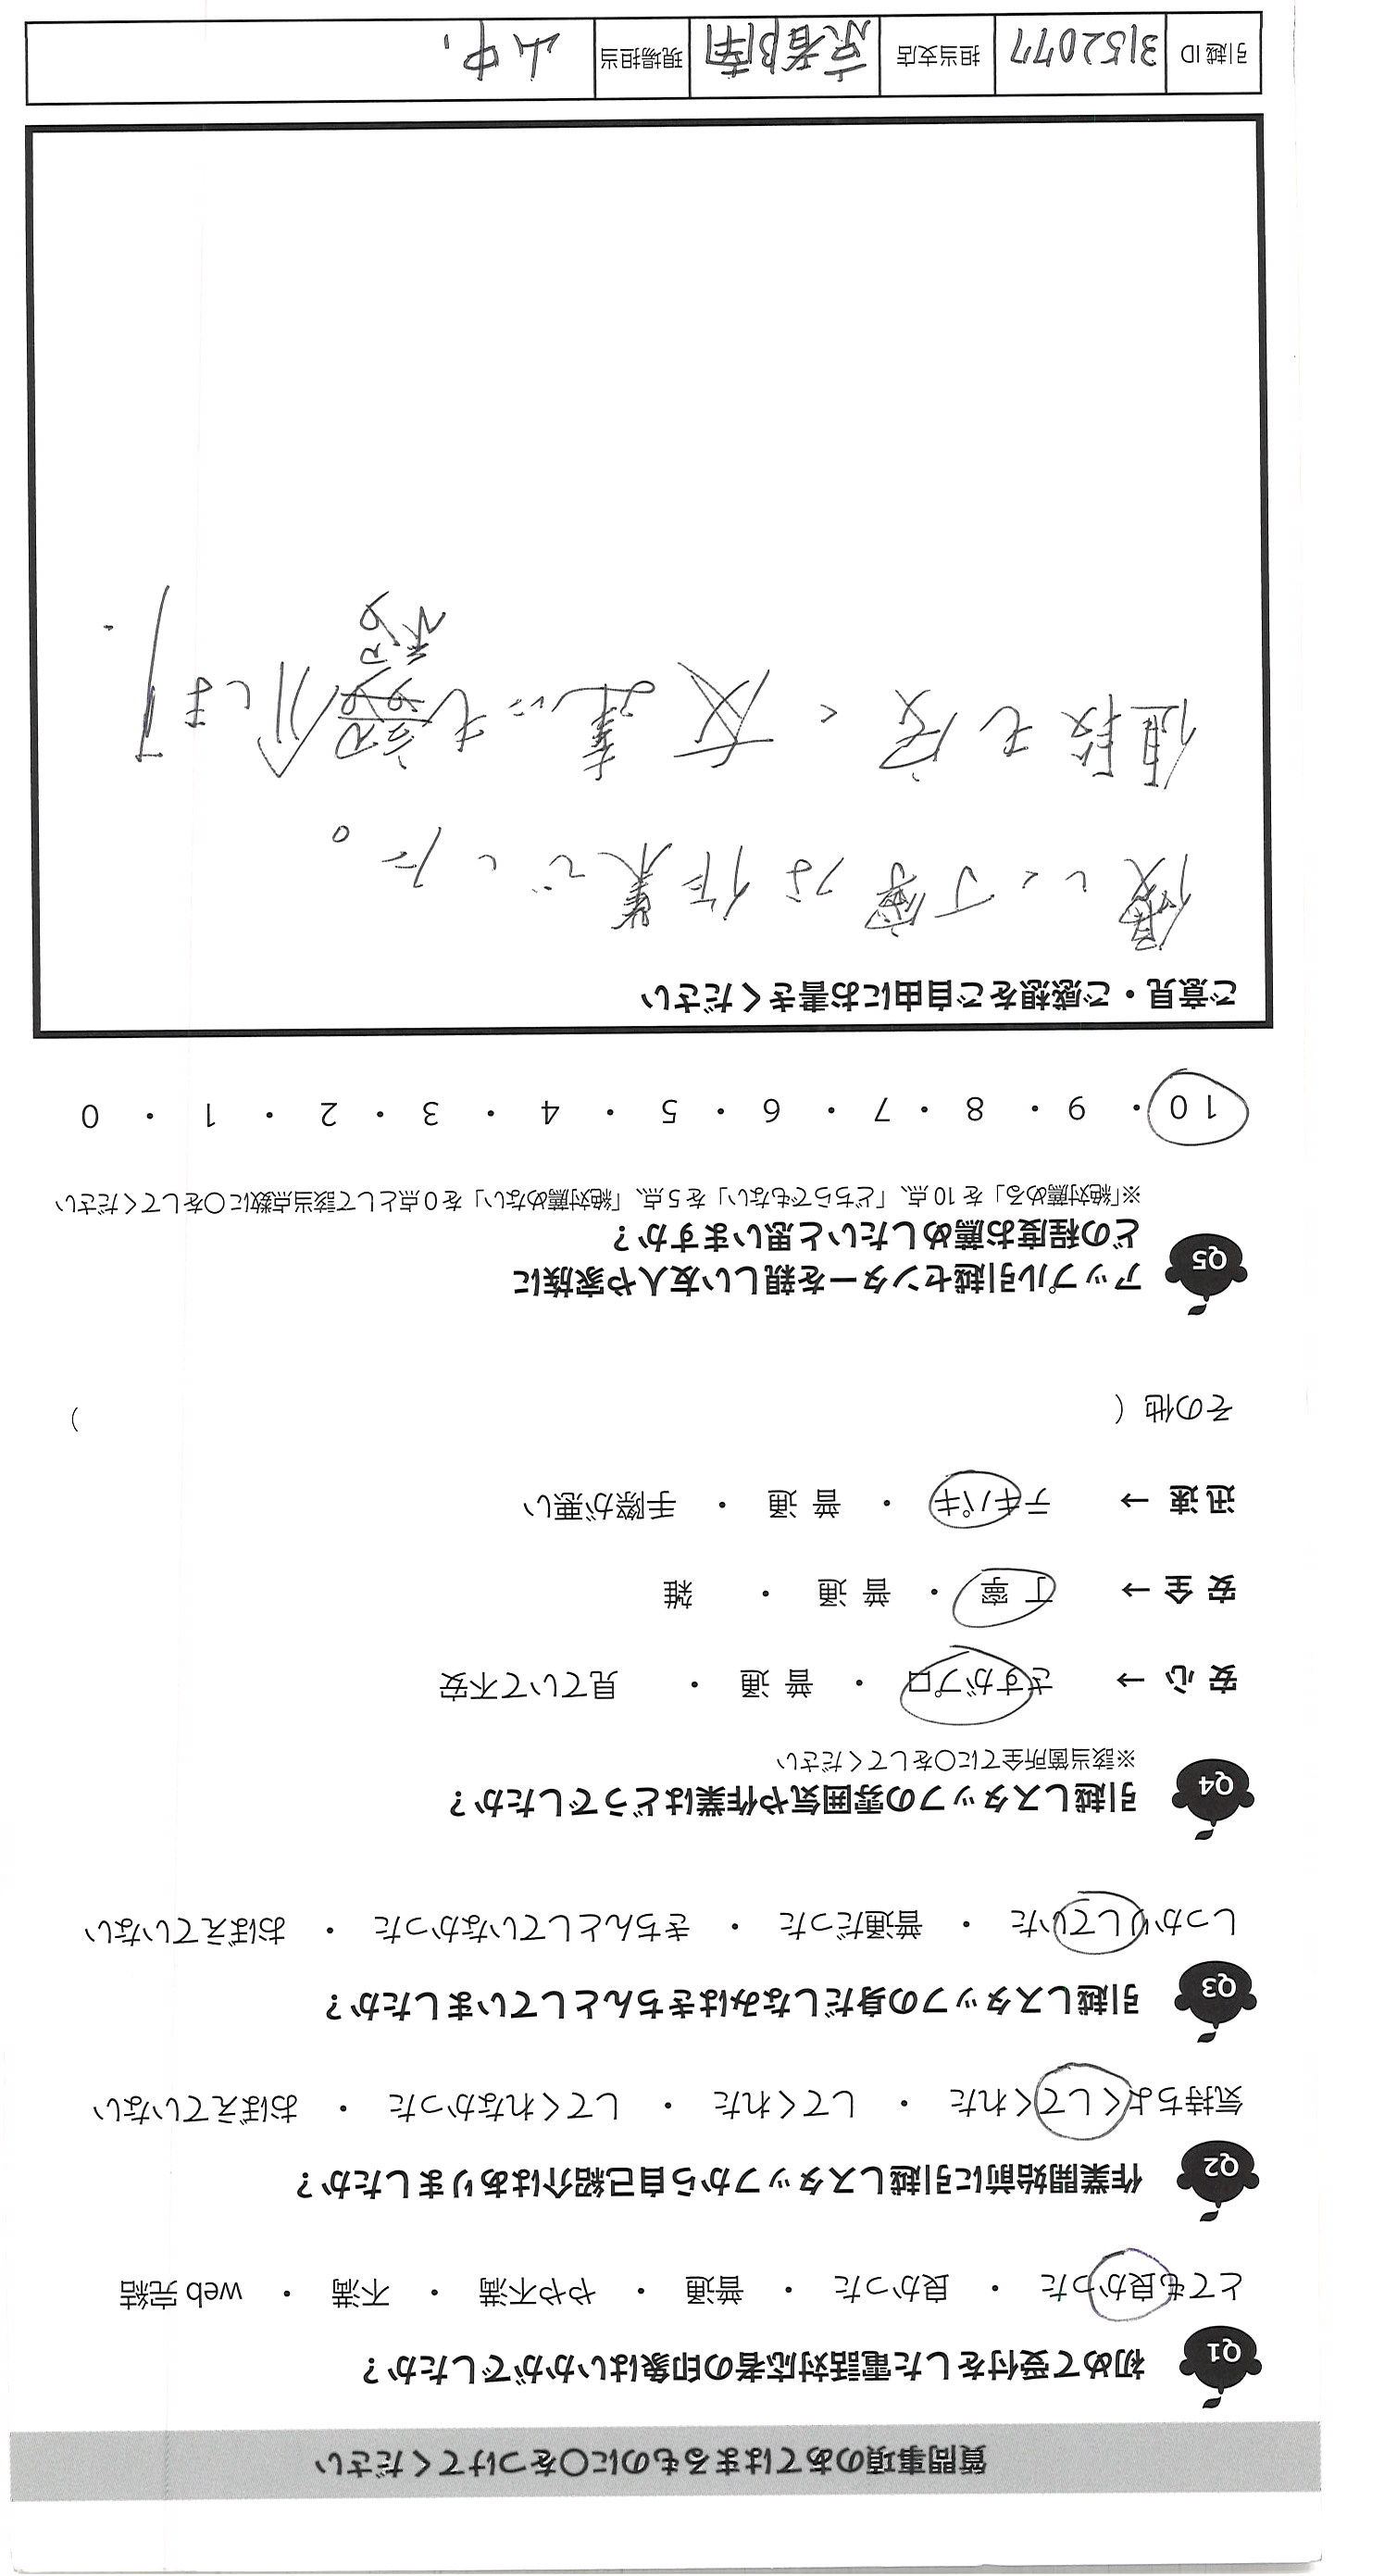 質問事項のあてはまるものに○をつけてください
Q1 初めて受付をした電話対応者の印象はいかがでしたか？
とても良かった ・ 良かった ・ 普通 ・ やや不満 ・ 不満 ・ web 完結
Q2 作業開始前に引越しスタッフから自己紹介はありましたか？
気持ちよくしてくれた ・ してくれた ・ してくれなかった ・ おぼえていない
Q3 引越しスタッフの身だしなみはきちんとしていましたか？
しっかりしていた ・ 普通だった ・ きちんとしていなかった ・ おぼえていない
Q4 引越しスタッフの雰囲気や作業はどうでしたか？
※該当箇所全てに○をしてください
安 心 → さすがプロ ・ 普 通 ・ 見ていて不安
安 全 → 丁 寧 ・ 普 通 ・ 雑
迅 速 → テキパキ ・ 普 通 ・ 手際が悪い
その他（ ）
Q5 アップル引越センターを親しい友人や家族に
どの程度お薦めしたいと思いますか？
※「絶対薦める」を 10 点、「どちらでもない」を 5 点、「絶対薦めない」を 0 点として該当点数に○をしてください
10 ・ 9 ・ 8 ・ 7 ・ 6 ・ 5 ・ 4 ・ 3 ・ 2 ・ 1 ・ 0
ご意見・ご感想をご自由にお書きください
優しく丁寧な作業でした。
値段も安く友達にも紹介します.
引越 ID 3152077 担当支店 京都南 現場担当 山中.